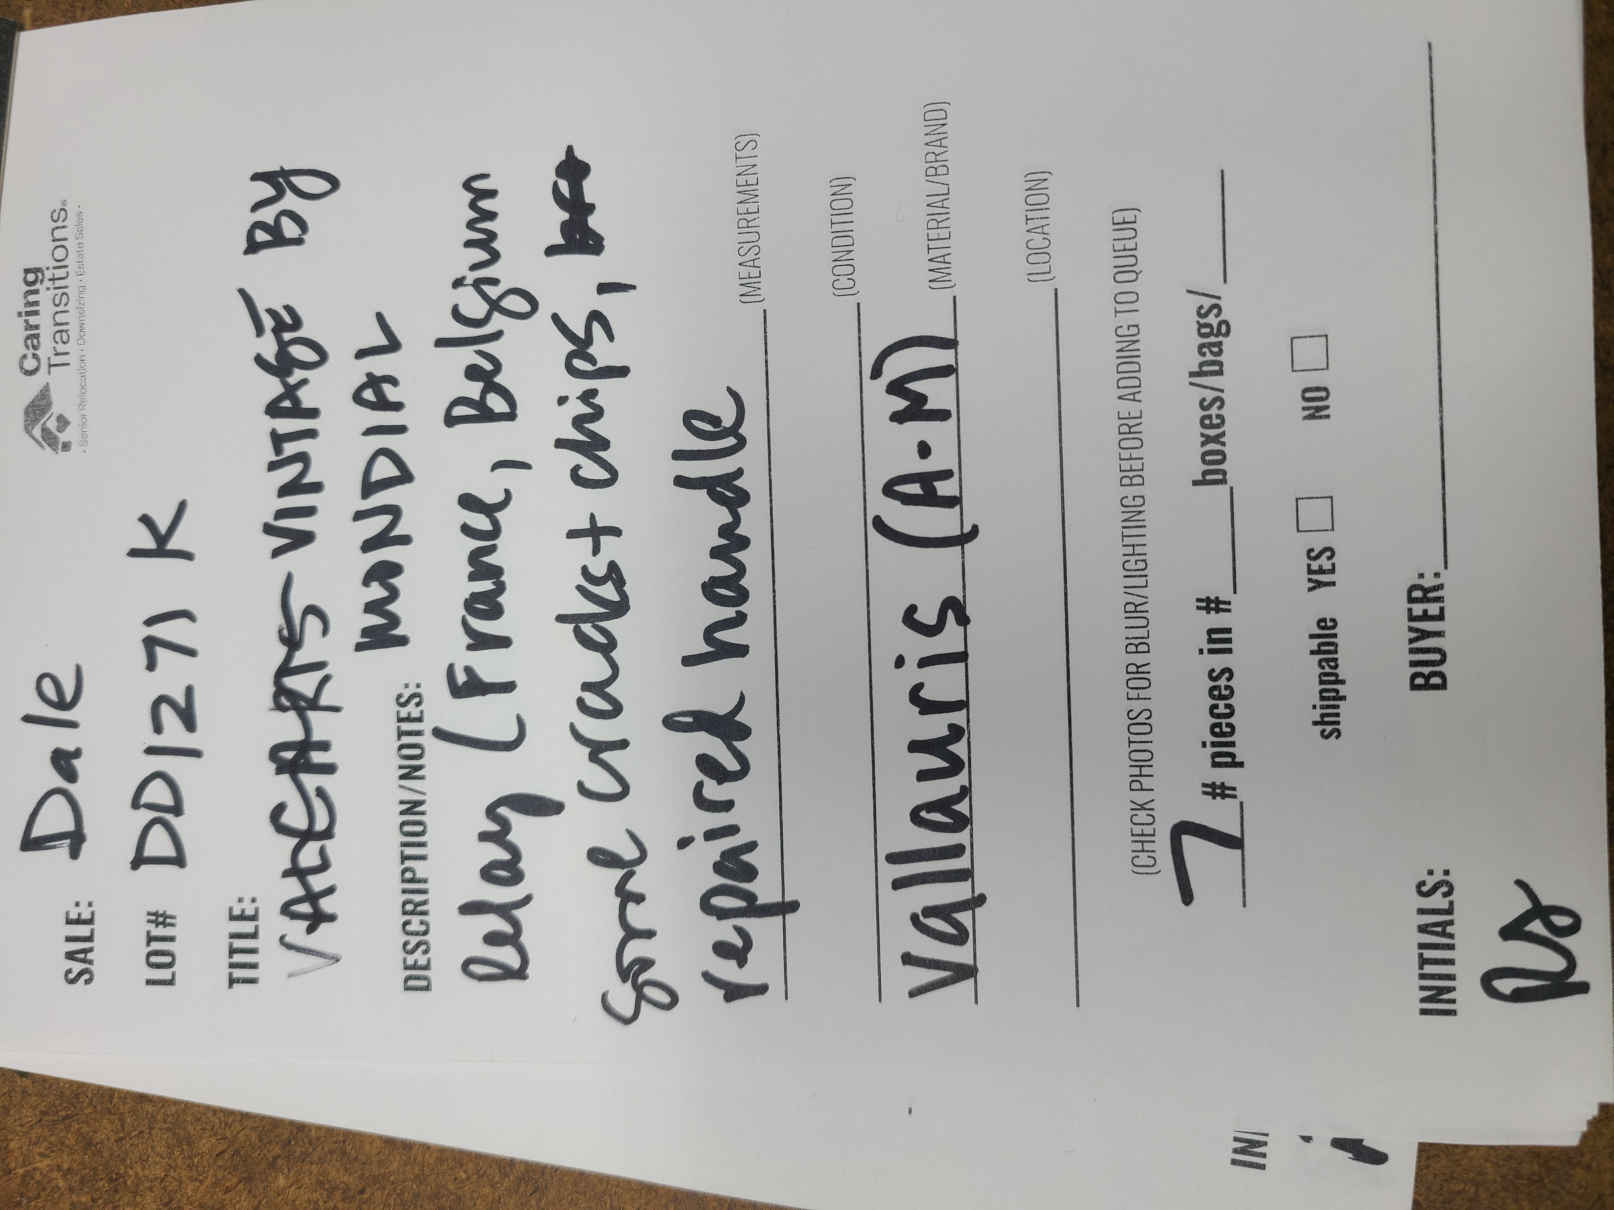 Caring
Transitions®
• Senior Relocation • Downsizing • Estate Sales •
SALE: Dale
LOT# DD1271 K
TITLE:
VINTAGE BY
MONDIAL
DESCRIPTION/NOTES:
Relay (France, Belgium
some cracks + chips,
repaired handle
(MEASUREMENTS)
(CONDITION)
Vallauris (A.M) (MATERIAL/BRAND)
(LOCATION)
(CHECK PHOTOS FOR BLUR/LIGHTING BEFORE ADDING TO QUEUE)
7 # pieces in # boxes/bags/
shippable YES NO
INITIALS: BUYER:
RS
IN